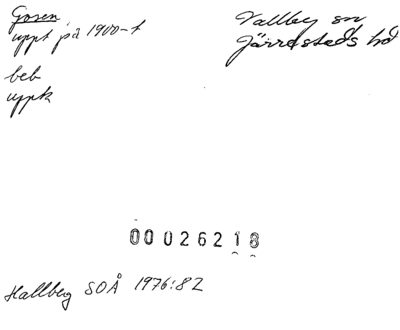 Gosen
uppt på 1900-t
beb
uppk
Vallby sn
Järrestads hd
00026218
Hallberg SOÅ 1976:82